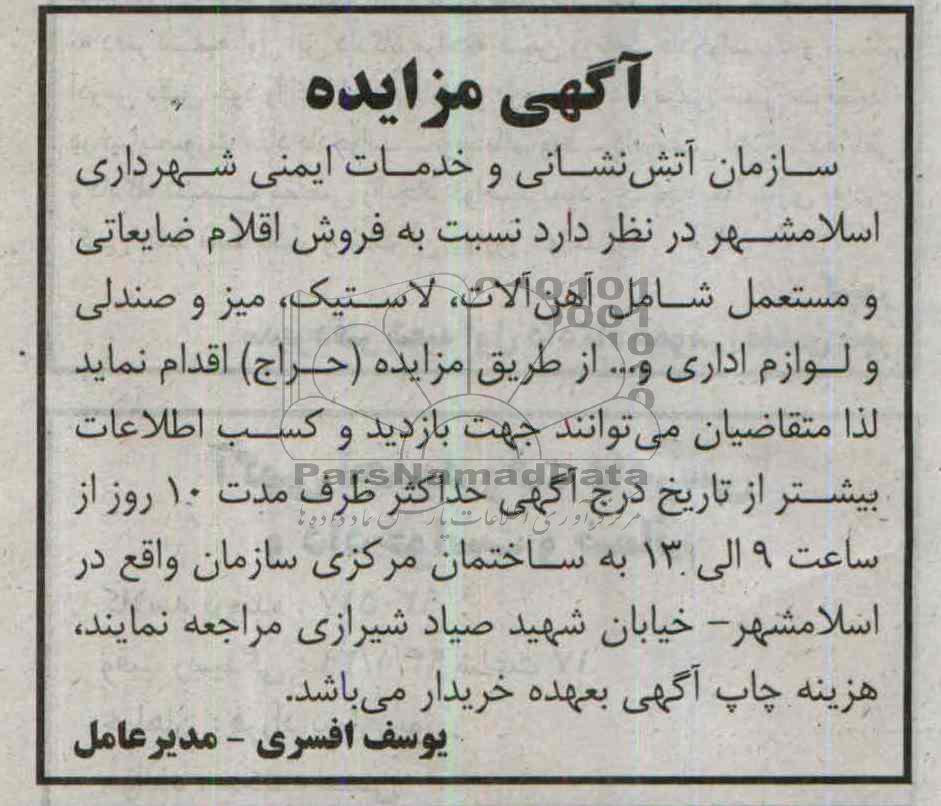 آگهی مزایده
سازمان آتش‌نشانی و خدمات ایمنی شهرداری
اسلامشهر در نظر دارد نسبت به فروش اقلام ضایعاتی
و مستعمل شامل آهن‌آلات، لاستیک، میز و صندلی
و لوازم اداری و... از طریق مزایده (حراج) اقدام نماید
لذا متقاضیان می‌توانند جهت بازدید و کسب اطلاعات
ParsNamadData
بیشتر از تاریخ درج آگهی حداکثر ظرف مدت ۱۰ روز از
ساعت ۹ الی ۱۳ به ساختمان مرکزی سازمان واقع در
اسلامشهر- خیابان شهید صیاد شیرازی مراجعه نمایند،
هزینه چاپ آگهی بعهده خریدار می‌باشد.
یوسف افسری - مدیرعامل